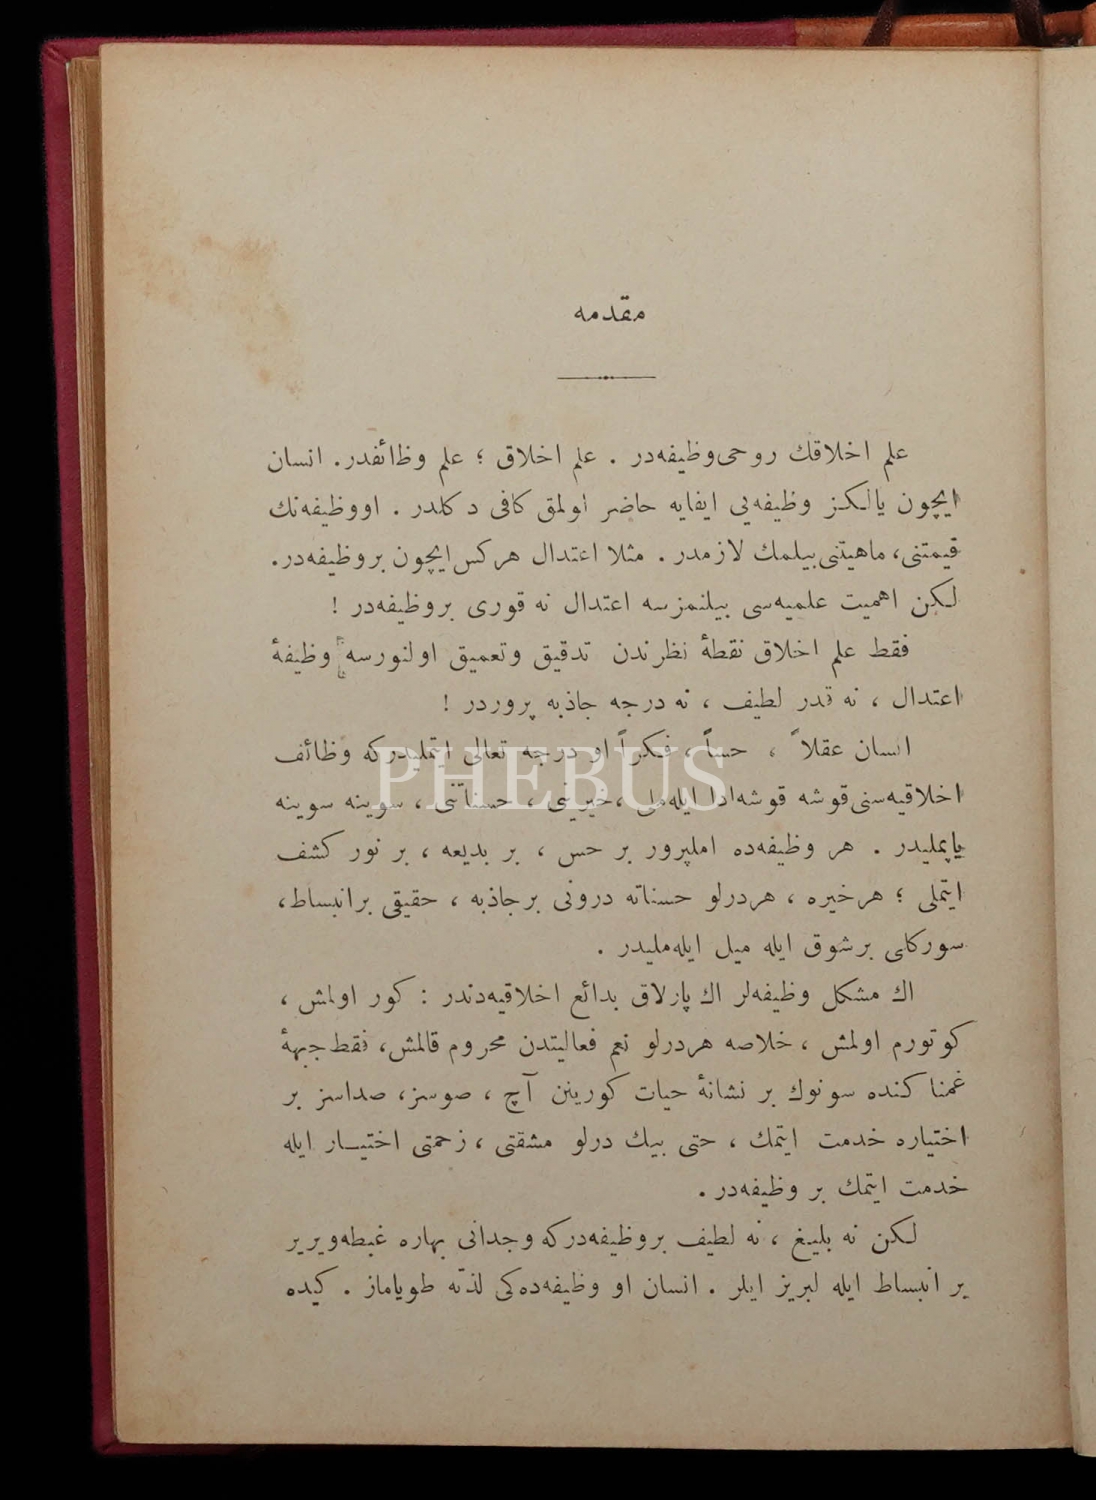 مقدمه
علم اخلاقك روحی وظیفه‌در . علم اخلاق ؛ علم وظائفدر. انسان
ایچون یالکز وظیفه‌یی ایفایه حاضر اولمق کافی دکلدر . او وظیفه‌نك
قیمتنی، ماهیتنی بیلمك لازمدر . مثلا اعتدال هرکس ایچون بر وظیفه‌در.
لکن اهمیت علمیه‌سی بیلنمزسه اعتدال نه قوری بر وظیفه‌در !
فقط علم اخلاق نقطهٔ نظرندن تدقیق وتعمیق اولنورسه وظیفهٔ
اعتدال ، نه قدر لطیف ، نه درجه جاذبه پروردر !
انسان عقلاً ، حساً ، فکراً او درجه تعالی ایتملیدرکه وظائف
اخلاقیه‌سنی قوشه قوشه ادا ایله‌ملی ، خیرینی ، حسناتنی ، سوینه سوینه
یاپملیدر . هر وظیفه‌ده املپرور بر حس ، بر بدیعه ، بر نور کشف
ایتملی ؛ هر خیره ، هر درلو حسناته درونی بر جاذبه ، حقیقی بر انبساط،
سورکلی بر شوق ایله میل ایله‌ملیدر .
اك مشکل وظیفه‌لر اك پارلاق بدائع اخلاقیه‌دندر : کور اولمش ،
کوتورم اولمش ، خلاصه هردرلو نعم فعالیتدن محروم قالمش، فقط جبههٔ
غمناکنده سونوك بر نشانهٔ حیات کورینن آچ ، صوسز، صداسز بر
اختیاره خدمت ایتمك ، حتی بیك درلو مشقتی ، زحمتی اختیار ایله
خدمت ایتمك بر وظیفه‌در .
لکن نه بلیغ ، نه لطیف بر وظیفه‌درکه وجدانی بهاره غبطه ویریر
بر انبساط ایله لبریز ایلر . انسان او وظیفه‌ده‌کی لذته طویاماز . کیده
PHEBUS